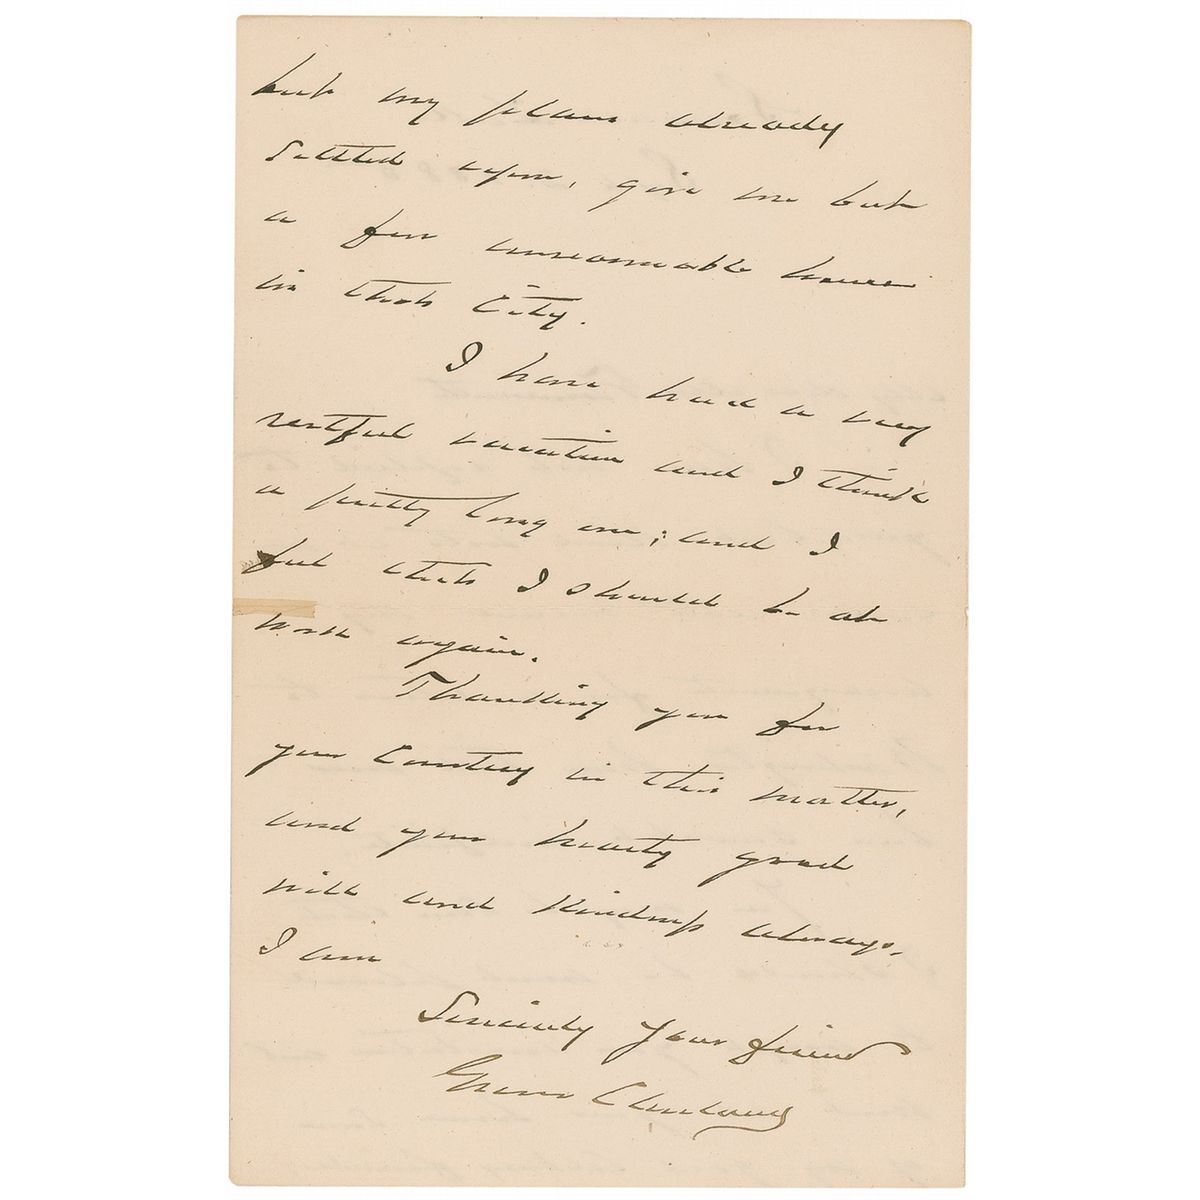 but my plans already
settled upon, give me but
a few unreasonable hours
in that City.
I have had a very
restful vacation and I think
a pretty long one; and I
feel that I should be at
work again.
Thanking you for
your courtesy in this matter,
and your hearty good
will and kindness always,
I am
Sincerely Your friend
Grover Cleveland